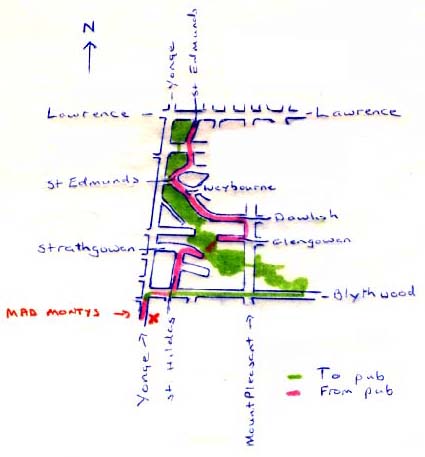 N
Yonge
St Edmunds
Lawrence
Lawrence
St Edmunds
Weybourne
Dawlish
Strathgowan
Glengowan
Blythwood
MAD MONTYS
Yonge
St Hildas
Mount Pleasent
To pub
From pub